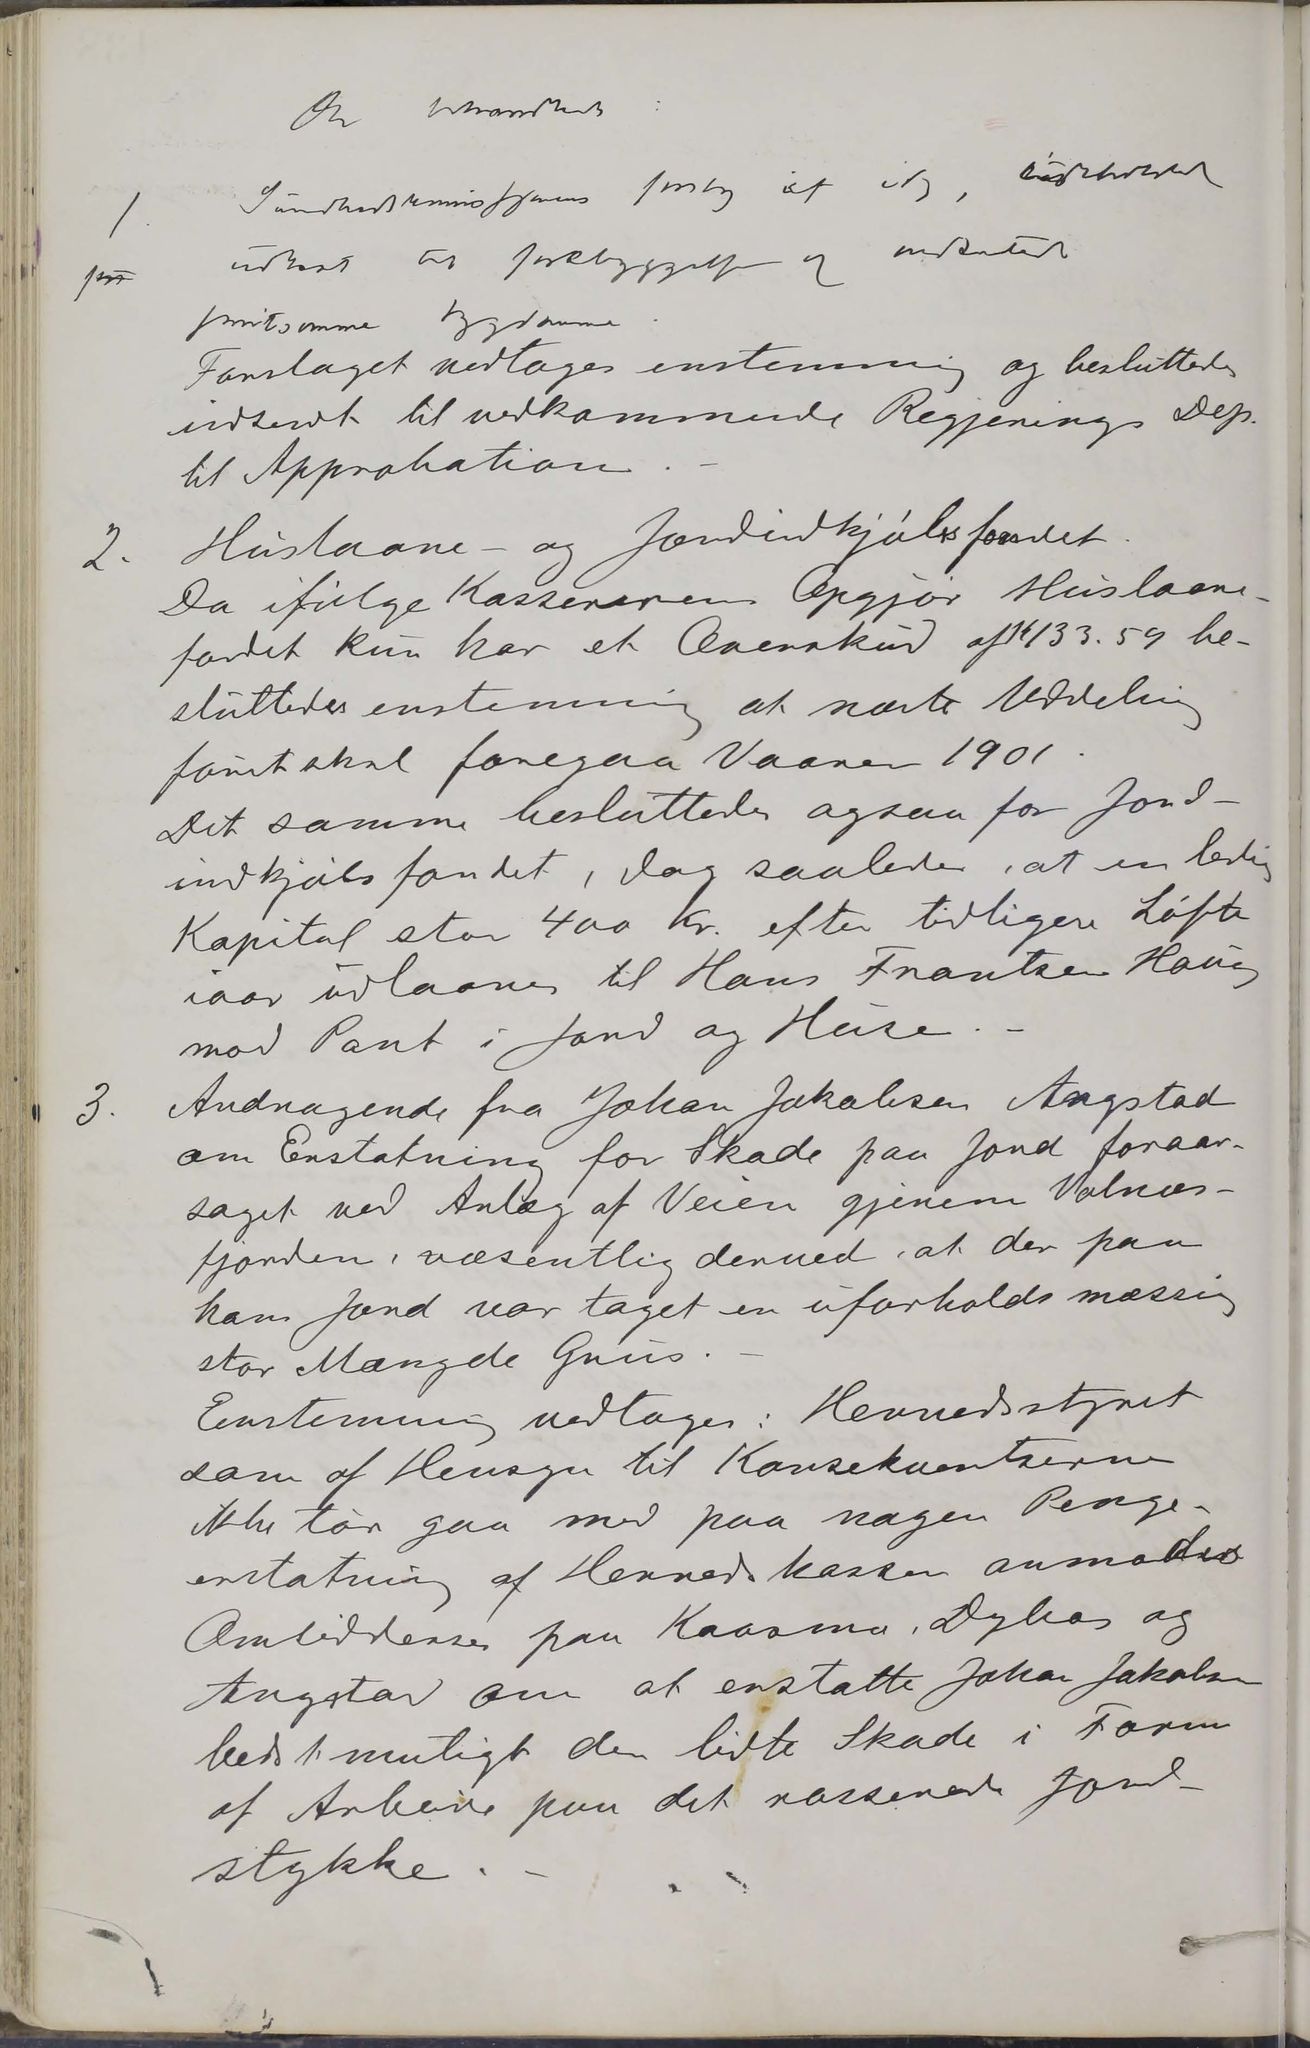 Blev behandlet:
1. Sundhedskommissjonens forslag af idag, indeholdende
udkast til forebyggelse og modarbeidelse
smitsomme sygdomme.
Forslaget vedtages enstemmig og besluttedes
indsendt til vedkommende Regjerings Dep.
til Approbation. -
2. Huslaane- og Jordindkjøbsfondet.
Da ifølge Kassererens Opgjør Huslaane-
fondet kun har et Overskud af K 133.59 be-
sluttedes enstemmig at næste Uddeling
først skal foregaa Vaaren 1901.
Det samme besluttedes ogsaa for Jord-
indkjøbsfondet, dog saaledes, at en ledig
Kapital stor 400 Kr. efter tidligere Løfte
iaar udlaanes til Hans Frantsen Haug
mod Pant i Jord og Huse. -
3. Andragende fra Johan Jakobsen Angstad
om Erstatning for Skade paa Jord foraar-
saget ved Anlæg af Veien gjenem Valnæs-
fjorden, væsentlig derved, at der paa
hans Jord var taget en uforholdsmæssig
stor Mængde Grus. -
Enstemmig vedtages: Herredsstyret
som af Hensyn til Konsekventserne
ikke tør gaa med paa nogen Penge-
erstatning af Herredskassen anmodes
Opsidderne paa Kaasmo, Dybos og
Angstad om at erstatte Johan Jakobsen
bedst muligt den lidte Skade i Form
af Arbeide paa det rasserede Jord-
stykke. -